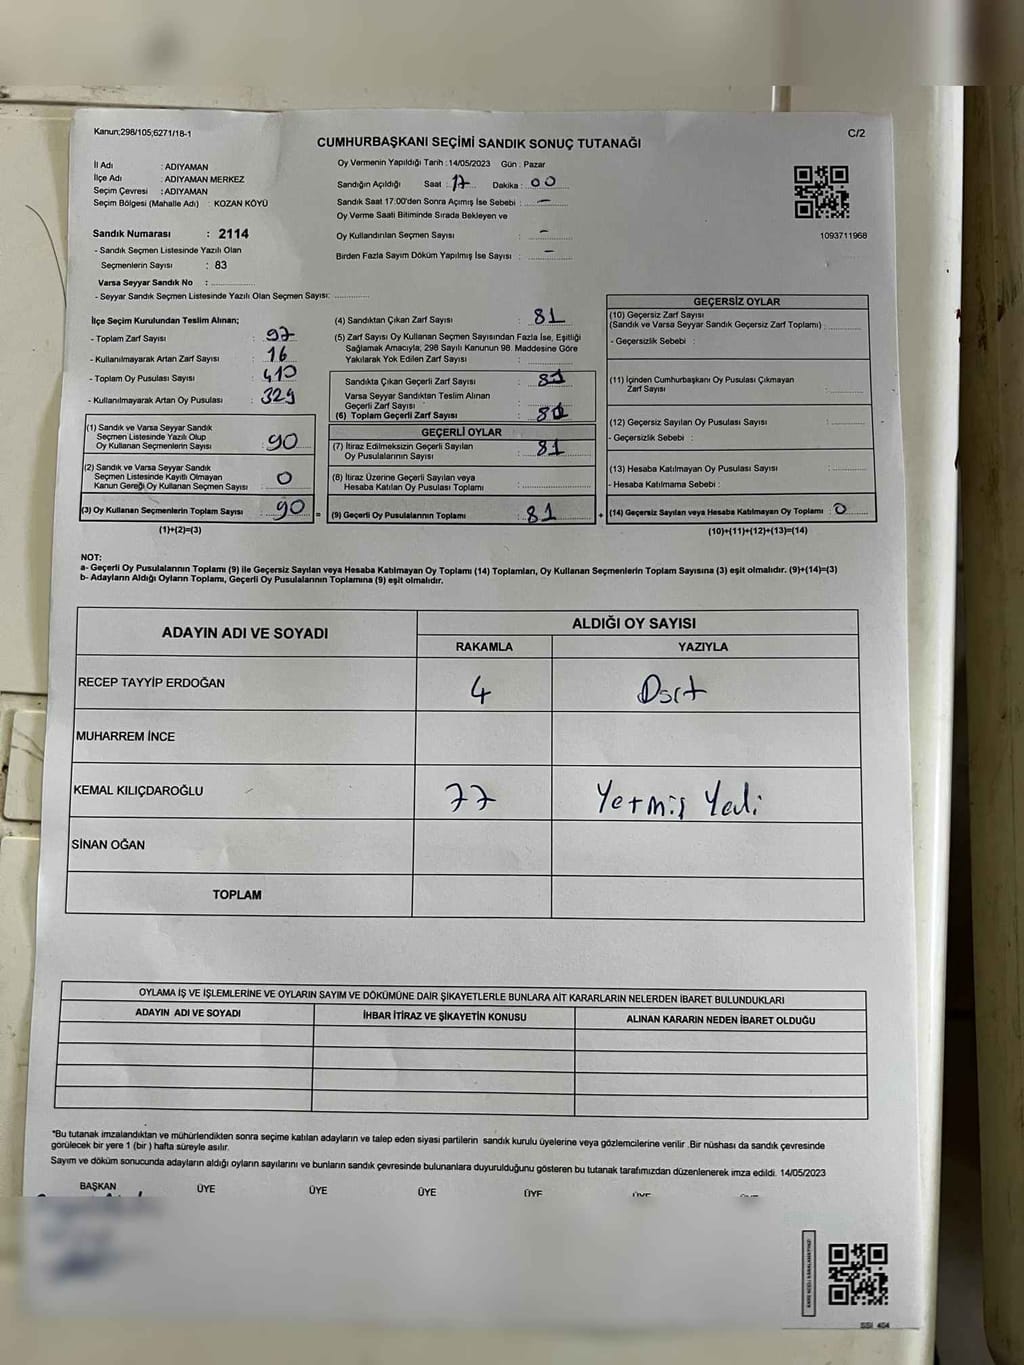 Kanun;298/105;6271/18-1
C/2
CUMHURBAŞKANI SEÇİMİ SANDIK SONUÇ TUTANAĞI
İl Adı : ADIYAMAN
İlçe Adı : ADIYAMAN MERKEZ
Seçim Çevresi : ADIYAMAN
Seçim Bölgesi (Mahalle Adı) : KOZAN KÖYÜ
Sandık Numarası : 2114
- Sandık Seçmen Listesinde Yazılı Olan
Seçmenlerin Sayısı : 83
Varsa Seyyar Sandık No :
- Seyyar Sandık Seçmen Listesinde Yazılı Olan Seçmen Sayısı:
Oy Vermenin Yapıldığı Tarih : 14/05/2023 Gün : Pazar
Sandığın Açıldığı Saat : 17 Dakika : 00
Sandık Saat 17:00'den Sonra Açımış İse Sebebi : -
Oy Verme Saati Bitiminde Sırada Bekleyen ve
Oy Kullandırılan Seçmen Sayısı : -
Birden Fazla Sayım Döküm Yapılmış İse Sayısı : -
1093711968
İlçe Seçim Kurulundan Teslim Alınan;
- Toplam Zarf Sayısı : 97
- Kullanılmayarak Artan Zarf Sayısı : 16
- Toplam Oy Pusulası Sayısı : 410
- Kullanılmayarak Artan Oy Pusulası : 329
(1) Sandık ve Varsa Seyyar Sandık
Seçmen Listesinde Yazılı Olup
Oy Kullanan Seçmenlerin Sayısı : 90
(2) Sandık ve Varsa Seyyar Sandık
Seçmen Listesinde Kayıtlı Olmayan
Kanun Gereği Oy Kullanan Seçmen Sayısı : 0
(3) Oy Kullanan Seçmenlerin Toplam Sayısı : 90
(1)+(2)=(3)
(4) Sandıktan Çıkan Zarf Sayısı : 81
(5) Zarf Sayısı Oy Kullanan Seçmen Sayısından Fazla İse, Eşitliği
Sağlamak Amacıyla, 298 Sayılı Kanunun 98. Maddesine Göre
Yakılarak Yok Edilen Zarf Sayısı :
Sandıkta Çıkan Geçerli Zarf Sayısı : 81
Varsa Seyyar Sandıktan Teslim Alınan
Geçerli Zarf Sayısı :
(6) Toplam Geçerli Zarf Sayısı : 81
GEÇERLİ OYLAR
(7) İtiraz Edilmeksizin Geçerli Sayılan
Oy Pusulalarının Sayısı : 81
(8) İtiraz Üzerine Geçerli Sayılan veya
Hesaba Katılan Oy Pusulası Toplamı :
= (9) Geçerli Oy Pusulalarının Toplamı : 81
GEÇERSİZ OYLAR
(10) Geçersiz Zarf Sayısı
(Sandık ve Varsa Seyyar Sandık Geçersiz Zarf Toplamı)
- Geçersizlik Sebebi :
(11) İçinden Cumhurbaşkanı Oy Pusulası Çıkmayan
Zarf Sayısı :
(12) Geçersiz Sayılan Oy Pusulası Sayısı :
- Geçersizlik Sebebi :
(13) Hesaba Katılmayan Oy Pusulası Sayısı :
- Hesaba Katılmama Sebebi :
+ (14) Geçersiz Sayılan veya Hesaba Katılmayan Oy Toplamı : 0
(10)+(11)+(12)+(13)=(14)
NOT:
a- Geçerli Oy Pusulalarının Toplamı (9) ile Geçersiz Sayılan veya Hesaba Katılmayan Oy Toplamı (14) Toplamları, Oy Kullanan Seçmenlerin Toplam Sayısına (3) eşit olmalıdır. (9)+(14)=(3)
b- Adayların Aldığı Oyların Toplamı, Geçerli Oy Pusulalarının Toplamına (9) eşit olmalıdır.
ADAYIN ADI VE SOYADI
ALDIĞI OY SAYISI
RAKAMLA YAZIYLA
RECEP TAYYİP ERDOĞAN 4 Dört
MUHARREM İNCE
KEMAL KILIÇDAROĞLU 77 Yetmiş Yedi
SİNAN OĞAN
TOPLAM
OYLAMA İŞ VE İŞLEMLERİNE VE OYLARIN SAYIM VE DÖKÜMÜNE DAİR ŞİKAYETLERLE BUNLARA AİT KARARLARIN NELERDEN İBARET BULUNDUKLARI
ADAYIN ADI VE SOYADI İHBAR İTİRAZ VE ŞİKAYETİN KONUSU ALINAN KARARIN NEDEN İBARET OLDUĞU
*Bu tutanak imzalandıktan ve mühürlendikten sonra seçime katılan adayların ve talep eden siyasi partilerin sandık kurulu üyelerine veya gözlemcilerine verilir .Bir nüshası da sandık çevresinde
görülecek bir yere 1 (bir ) hafta süreyle asılır.
Sayım ve döküm sonucunda adayların aldığı oyların sayılarını ve bunların sandık çevresinde bulunanlara duyurulduğunu gösteren bu tutanak tarafımızdan düzenlenerek imza edildi. 14/05/2023
BAŞKAN ÜYE ÜYE ÜYE ÜYE ÜYE
SSI_404